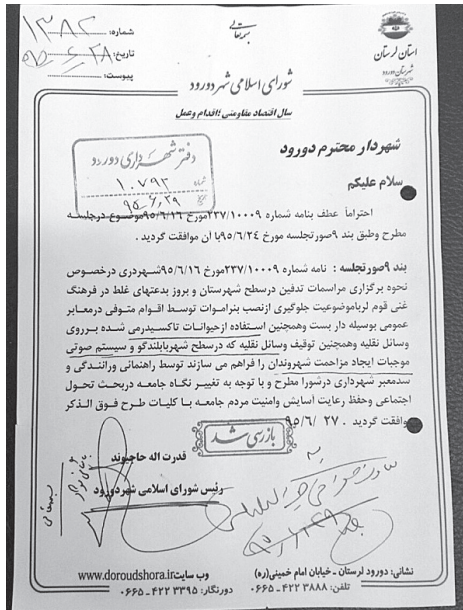 بسمه تعالی
شماره: ۱۳۸۲
تاریخ: ۹۵/۶/۲۸
پیوست:
استان لرستان
شهرستان دورود
شورای اسلامی شهر دورود
سال اقتصاد مقاومتی ؛اقدام وعمل
شهردار محترم دورود
دفتر شهرداری دورود
شماره ۱۰۷۹۲
۹۵/۶/۲۹
سلام علیکم
احتراماً عطف بنامه شماره ۲۳۷/۱۰۰۰۹مورخ ۹۵/۶/۱۶موضوع درجلسه
مطرح وطبق بند ۹صورتجلسه مورخ ۹۵/۶/۲۴با ان موافقت گردید .
بند ۹صورتجلسه : نامه شماره ۲۳۷/۱۰۰۰۹مورخ ۹۵/۶/۱۶شهردری درخصوص
نحوه برگزاری مراسمات تدفین درسطح شهرستان و بروز بدعتهای غلط در فرهنگ
غنی قوم لرباموضوعیت جلوگیری ازنصب بنرامواتت توسط اقوام متوفی درمعابر
عمومی بوسیله دار بست وهمچنین استفاده ازحیوانات تاکسیدرمی شده برروی
وسائل نقلیه وهمچنین توقیف وسائل نقلیه که درسطح شهربابلندگو و سیستم صوتی
موجبات ایجاد مزاحمت شهروندان را فراهم می سازند توسط راهنمائی ورانندگی و
سدمعبر شهرداری درشورا مطرح و با توجه به تغییر نگاه جامعه دربحث تحول
اجتماعی وحفظ رعایت آسایش وامنیت مردم جامعه با کلیات طرح فوق الذکر
موافقت گردید . ۹۵/۶/۲۷
بازرسی شد
قدرت اله حاجیوند
رئیس شورای اسلامی شهردورود
نشانی: دورود لرستان ـ خیابان امام خمینی(ره)
وب سایتwww.doroudshora.ir
تلفن: ۳۸۸۸ ۴۲۲ -۰۶۶۵
دورنگار: ۳۳۹۵ ۴۲۲ -۰۶۶۵